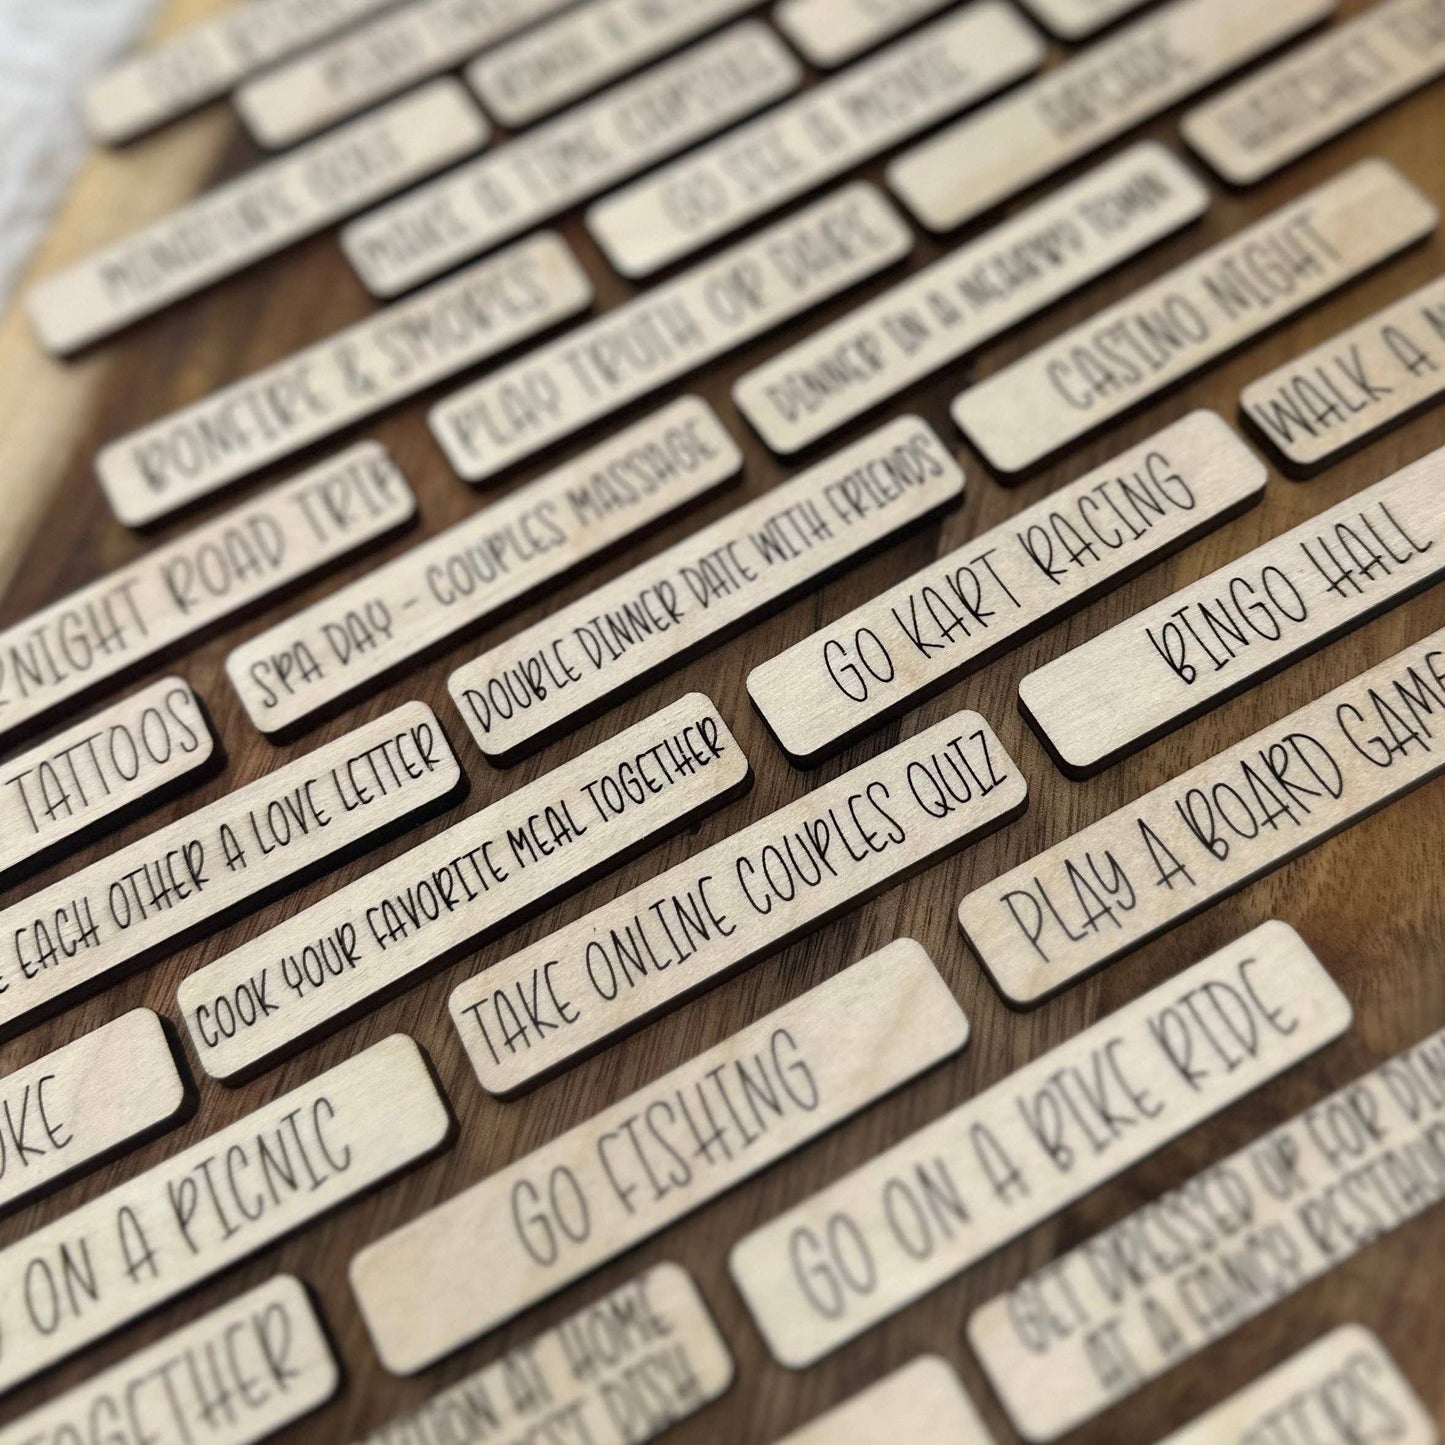 MINIATURE GOLF
MAKE A TIME CAPSULE
GO SEE A MOVIE
ARCADE
HATCHET
BONFIRE & SMORES
PLAY TRUTH OR DARE
DINNER IN A NEARBY TOWN
CASINO NIGHT
WALK A
ROAD TRIP
SPA DAY - COUPLES MASSAGE
DOUBLE DINNER DATE WITH FRIENDS
GO KART RACING
BINGO HALL
TATTOOS
EACH OTHER A LOVE LETTER
COOK YOUR FAVORITE MEAL TOGETHER
TAKE ONLINE COUPLES QUIZ
PLAY A BOARD GAME
OKE
ON A PICNIC
GO FISHING
GO ON A BIKE RIDE
GET DRESSED UP FOR DIN
AT A FANCY RESTAUR
TOGETHER
AT HOME
DISH